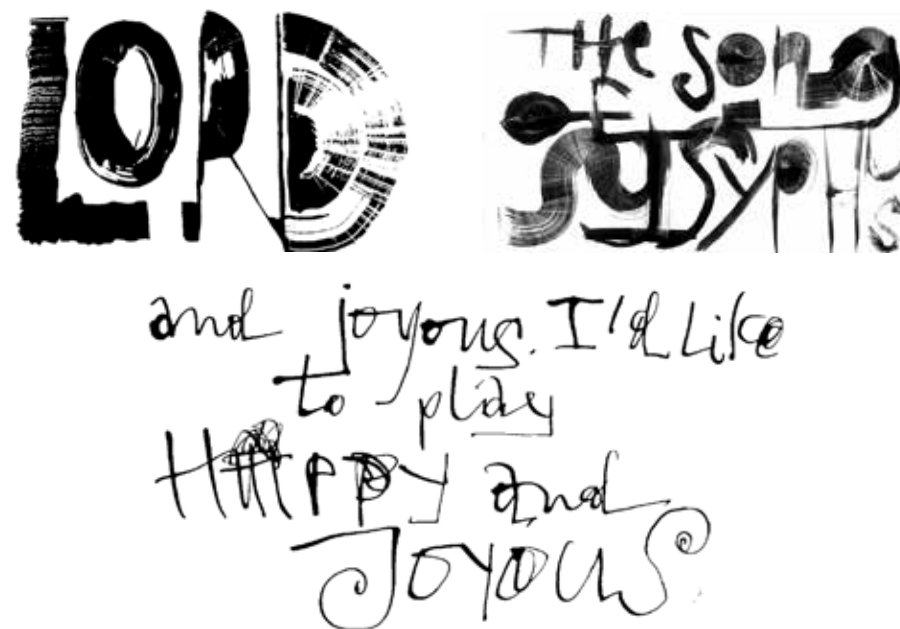 LORD
THe song
of
SySypHus
and joyous. I'd Like
to play
Happy and
Joyous.